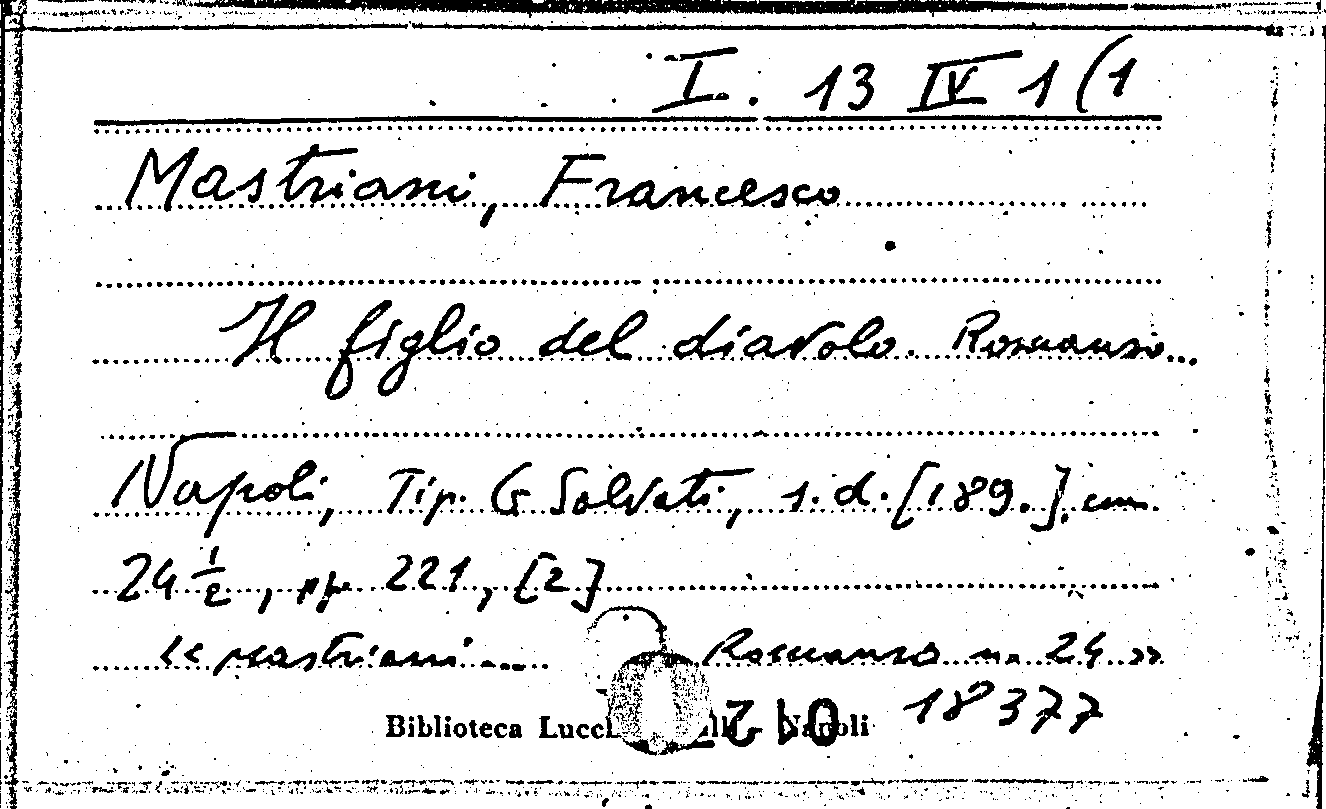 I. 13 IV 1 (1
Mastriani, Francesco
Il figlio del diavolo. Romanzo...
Napoli, Tip. G Salvati, s.d. [189.], cm.
24 1/2, pp. 221, [2]
« Mastriani..... Romanzo n. 24 »
Biblioteca Napoli 18377